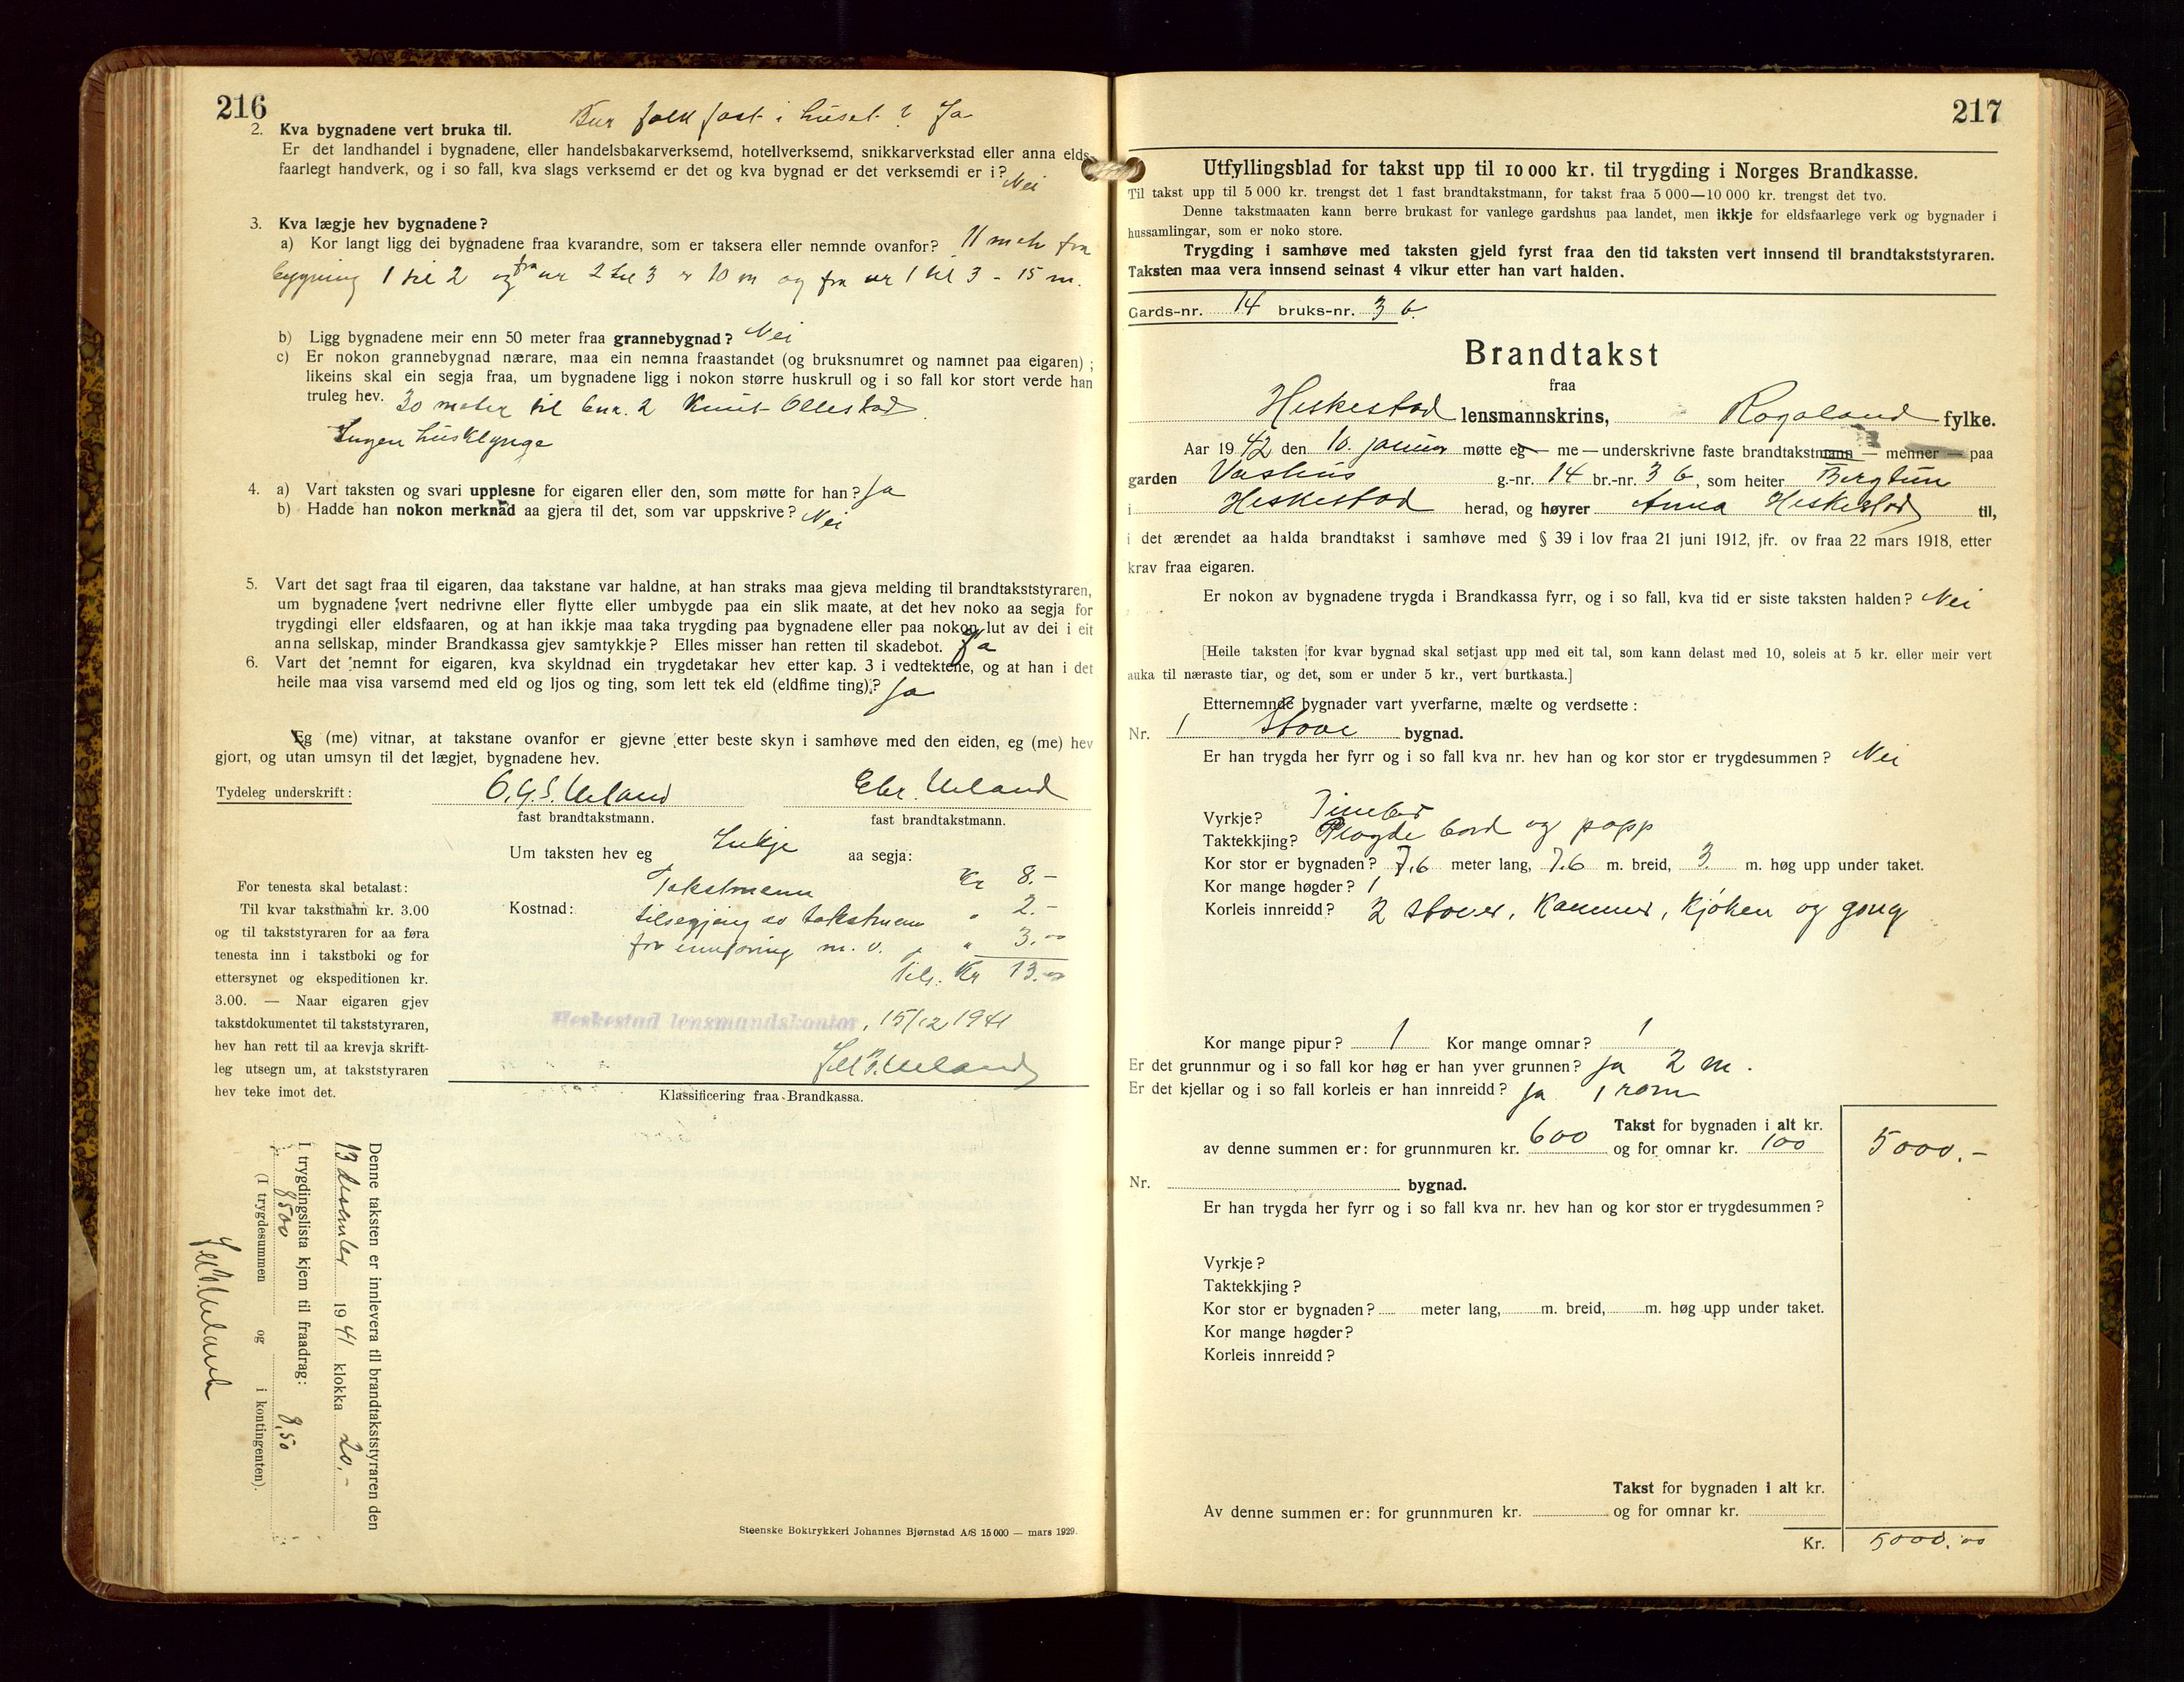 216
Bur folk fast i huset? Ja
2. Kva bygnadene vert bruka til.
Er det landhandel i bygnadene, eller handelsbakarverksemd, hotellverksemd, snikkarverkstad eller anna elds-
faarlegt handverk, og i so fall, kva slags verksemd er det og kva bygnad er det verksemdi er i? Nei
3. Kva lægje hev bygnadene?
a) Kor langt ligg dei bygnadene fraa kvarandre, som er taksera eller nemnde ovanfor? 11 meter fra
bygning 1 til 2 og fra nr 2 til 3 er 10 m og fra nr 1 til 3 - 15 m.
b) Ligg bygnadene meir enn 50 meter fraa grannebygnad? Nei
c) Er nokon grannebygnad nærare, maa ein nemna fraastandet (og bruksnumret og namnet paa eigaren);
likeins skal ein segja fraa, um bygnadene ligg i nokon større huskrull og i so fall kor stort verde han
truleg hev. 30 meter til bnr. 2 Knut Ollestad.
Ingen husklynge
4. a) Vart taksten og svari upplesne for eigaren eller den, som møtte for han? Ja
b) Hadde han nokon merknad aa gjera til det, som var uppskrive? Nei
5. Vart det sagt fraa til eigaren, daa takstane var haldne, at han straks maa gjeva melding til brandtakststyraren,
um bygnadene vert nedrivne eller flytte eller umbygde paa ein slik maate, at det hev noko aa segja for
trygdingi eller eldsfaaren, og at han ikkje maa taka trygding paa bygnadene eller paa nokon lut av dei i eit
anna sellskap, minder Brandkassa gjev samtykkje? Elles misser han retten til skadebot. Ja
6. Vart det nemnt for eigaren, kva skyldnad ein trygdetakar hev etter kap. 3 i vedtektene, og at han i det
heile maa visa varsemd med eld og ljos og ting, som lett tek eld (eldfime ting)? Ja
Eg (me) vitnar, at takstane ovanfor er gjevne etter beste skyn i samhøve med den eiden, eg (me) hev
gjort, og utan umsyn til det lægjet, bygnadene hev.
Tydeleg underskrift: O.G.S. Ueland Ebr. Ueland
fast brandtakstmann. fast brandtakstmann.
Um taksten hev eg Inkje aa segja:
Kostnad: Takstmenn Kr 8.-
tilsegjing av takstmenn " 2.-
for innføring m. v. " 3.00
Tils. Kr 13.00
Heskestad lensmandskontor, 15/12 1941
Ueland
For tenesta skal betalast:
Til kvar takstmahn kr. 3.00
og til takststyraren for aa føra
tenesta inn i takstboki og for
ettersynet og ekspeditionen kr.
3.00. — Naar eigaren gjev
takstdokumentet til takststyraren,
hev han rett til aa krevja skrift-
leg utsegn um, at takststyraren
hev teke imot det.
Klassificering fraa Brandkassa.
Denne taksten er innlevera til brandtakststyraren den
13 desember 1941 klokka 20.-
I trygdingslista kjem til fraadrag:
8500 8,50
(I trygdesummen og i kontingenten).
Ueland
Steenske Boktrykkeri Johannes Bjørnstad A/S 15000 — mars 1929.
217
Utfyllingsblad for takst upp til 10 000 kr. til trygding i Norges Brandkasse.
Til takst upp til 5 000 kr. trengst det 1 fast brandtakstmann, for takst fraa 5 000—10 000 kr. trengst det tvo.
Denne takstmaaten kann berre brukast for vanlege gardshus paa landet, men ikkje for eldsfaarlege verk og bygnader i
hussamlingar, som er noko store.
Trygding i samhøve med taksten gjeld fyrst fraa den tid taksten vert innsend til brandtakststyraren.
Taksten maa vera innsend seinast 4 vikur etter han vart halden.
Gards-nr. 14 bruks-nr. 3 b.
Brandtakst
fraa
Heskestad lensmannskrins, Rogaland fylke.
Aar 1942 den 10. januar møtte eg — me — underskrivne faste brandtakstmann — menner — paa
garden Vashus g.-nr. 14 br.-nr. 3 b, som heiter Bergtun
i Heskestad herad, og høyrer Anna Heskestad til,
i det ærendet aa halda brandtakst i samhøve med § 39 i lov fraa 21 juni 1912, jfr. ov fraa 22 mars 1918, etter
krav fraa eigaren.
Er nokon av bygnadene trygda i Brandkassa fyrr, og i so fall, kva tid er siste taksten halden? Nei
[Heile taksten for kvar bygnad skal setjast upp med eit tal, som kann delast med 10, soleis at 5 kr. eller meir vert
auka til næraste tiar, og det, som er under 5 kr., vert burtkasta.]
Etternemnde bygnader vart yverfarne, mælte og verdsette:
Nr. 1 Stove bygnad.
Er han trygda her fyrr og i so fall kva nr. hev han og kor stor er trygdesummen? Nei
Vyrkje? Timber
Taktekkjing? Pløgde bord og papp
Kor stor er bygnaden? 7.6 meter lang, 7.6 m. breid, 3. m. høg upp under taket.
Kor mange høgder? 1
Korleis innreidd? 2 stover, Kammer, kjøken og gong
Kor mange pipur? 1 Kor mange omnar? 1
Er det grunnmur og i so fall kor høg er han yver grunnen? Ja 2 m.
Er det kjellar og i so fall korleis er han innreidd? Ja 1 rom
Takst for bygnaden i alt kr.
av denne summen er: for grunnmuren kr. 600 og for omnar kr. 100 5000.-
Nr. bygnad.
Er han trygda her fyrr og i so fall kva nr. hev han og kor stor er trygdesummen?
Vyrkje?
Taktekkjing?
Kor stor er bygnaden? meter lang, m. breid, m. høg upp under taket.
Kor mange høgder?
Korleis innreidd?
Takst for bygnaden i alt kr.
Av denne summen er: for grunnmuren kr. og for omnar kr.
Kr. 5000.00